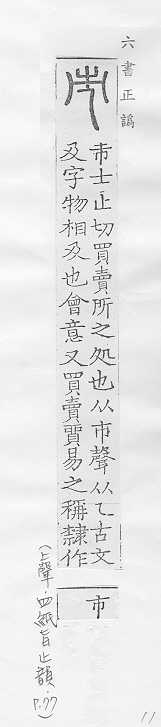 六書正譌
市士止切買賣所之処也从巿聲从乁古文
及字物相及也會意又買賣貿易之稱隸作
市
(上聲·四紙旨止韻·
11